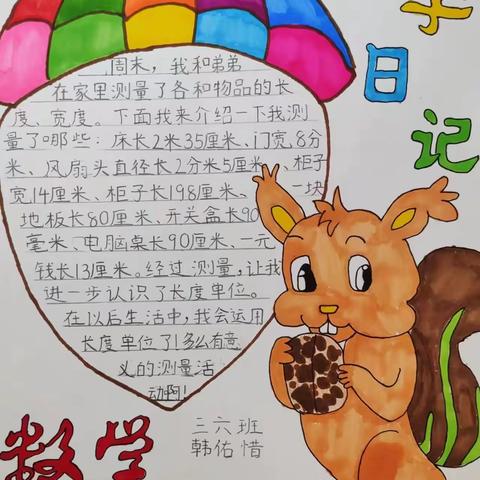 字
日
记
周末，我和弟弟
在家里测量了各和物品的长
度、宽度。下面我来介绍一下我测
量了哪些：床长2米35厘米、门宽8分
米、风扇头直径长2分米5厘米、柜子
宽14厘米、柜子长198厘米、一块
地板长80厘米、开关盒长90
毫米、电脑桌长90厘米、一元
钱长13厘米。经过测量，让我
进一步认识了长度单位。
在以后生活中，我会运用
长度单位了！多么有意
义的测量活
动啊！
三六班
韩佑惜
数学